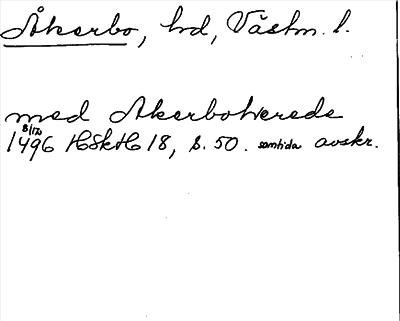 Åkerbo, hd, Västm. l.
med Akerbohærede
8/12
1496 HSkH 18, s. 50. samtida avskr.